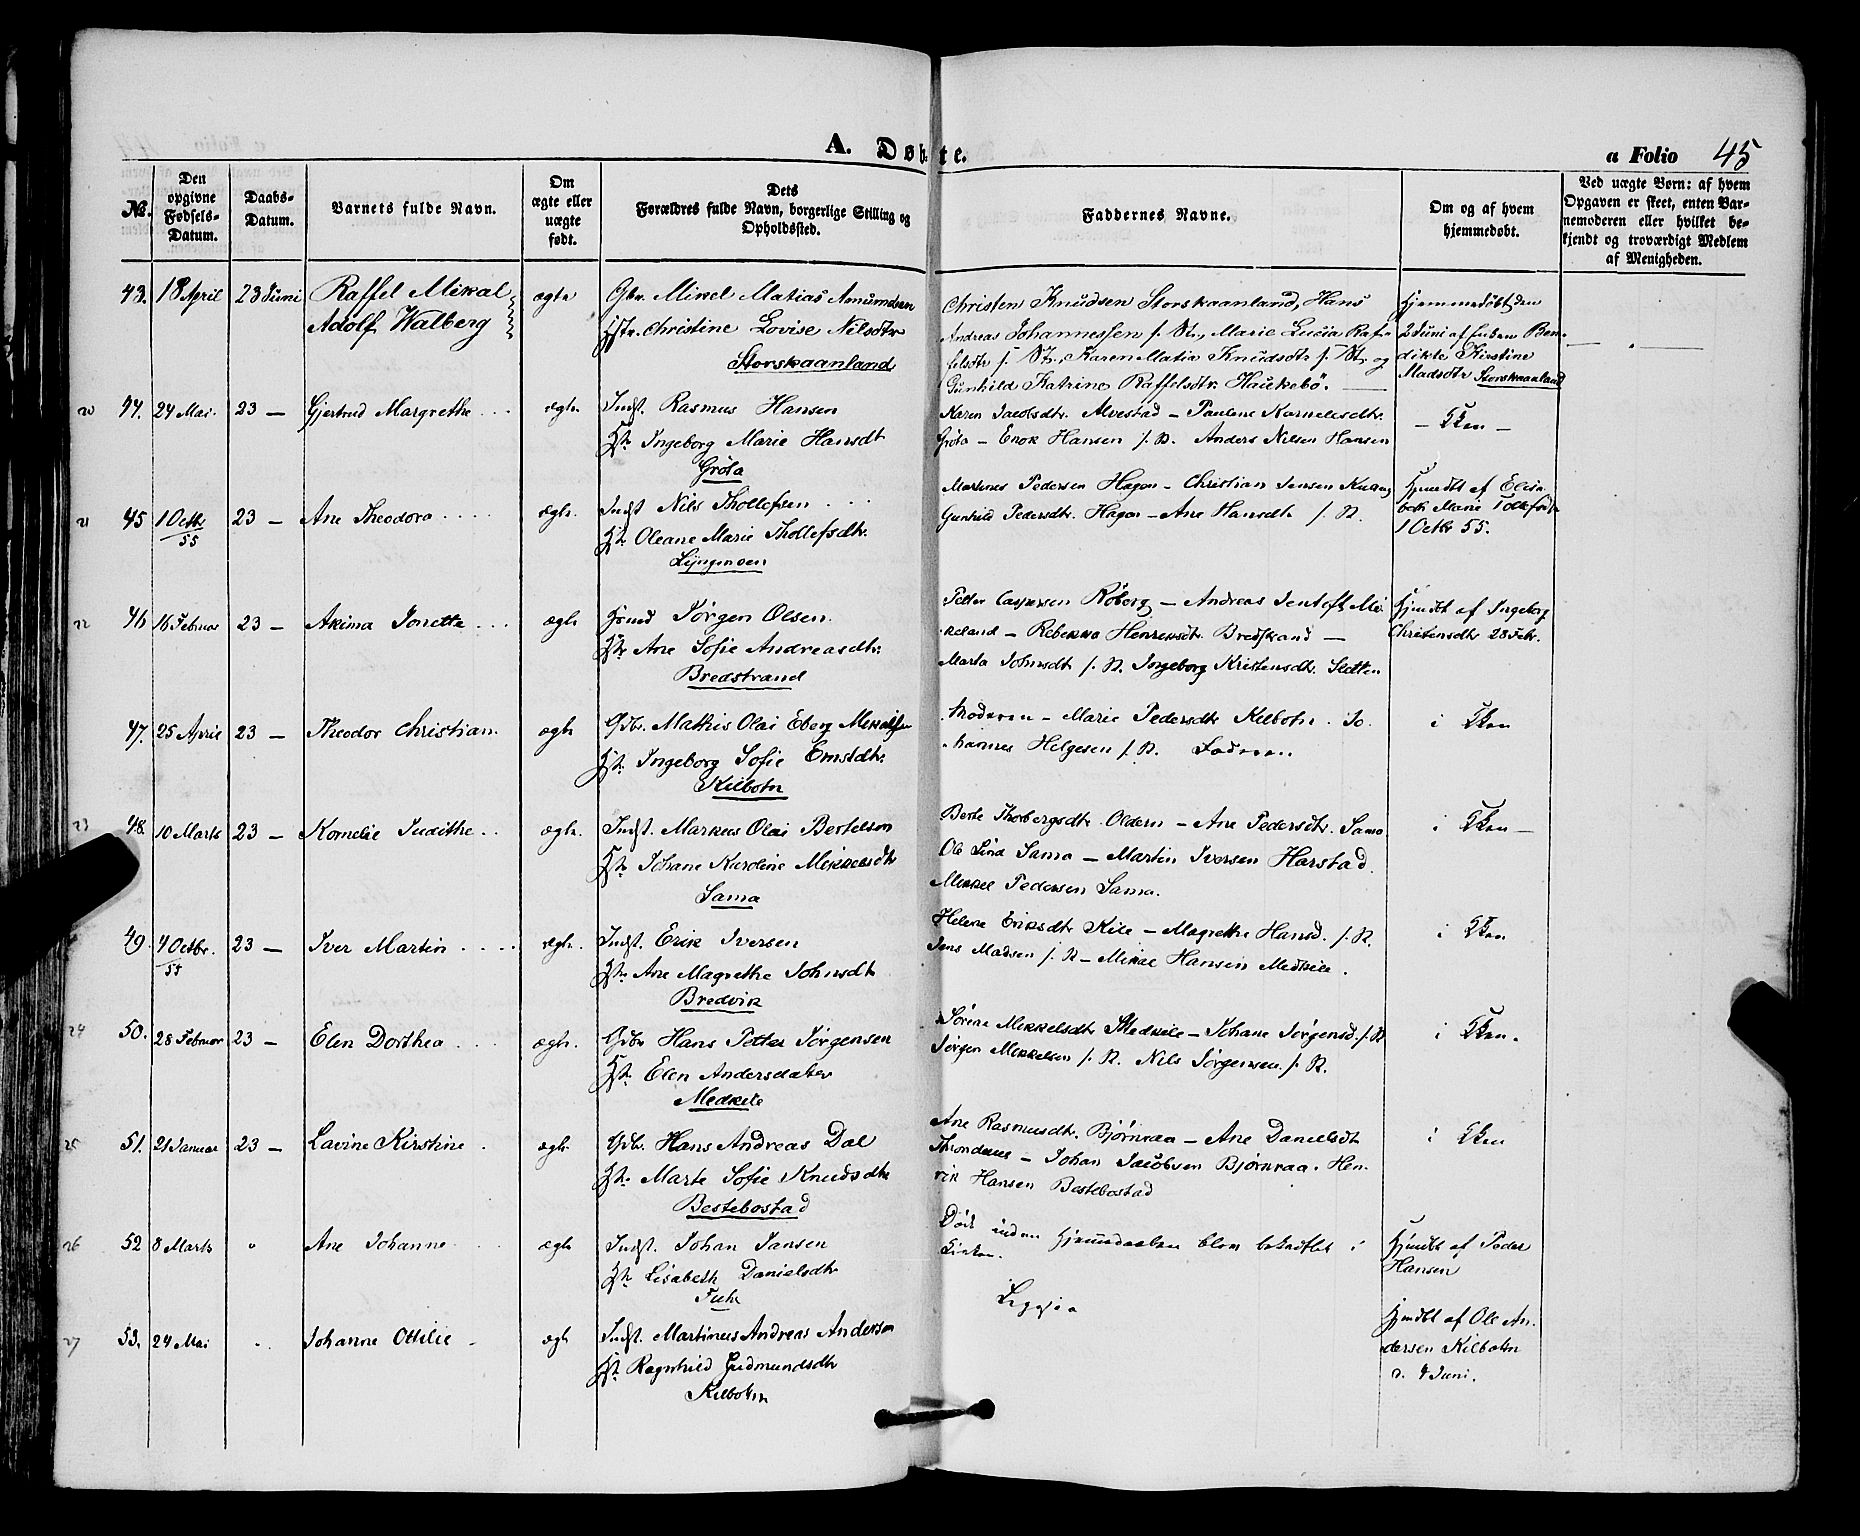 A. Døbte.
a Folio 45
№.
Den opgivne Fødsels-Datum.
Daabs-Datum.
Barnets fulde Navn.
Om ægte eller uægte født.
Dets Forældres fulde Navn, borgerlige Stilling og Opholdssted.
Faddernes Navne.
Om og af hvem hjemmedøbt.
Ved uægte Børn: af hvem Opgaven er skeet, enten Barnemoderen eller hvilket bekjendt og troværdigt Medlem af Menigheden.
43. 18 April 23 Juni Raffel Mikal ægte Gbr. Mikel Matias Amundsen
Adolf Walberg Hstr. Christine Lovise Nilsdtr
Storskaanland
Christen Knudsen Storskaanland, Hans
Andreas Johannessen f. St., Marie Lucia Raf-
felsdtr f. St., Karen Matia Knudsdtr f. St. og
Gunhild Katrine Raffelsdtr Haukebö.
Hjemmedöbt den
2 Juni af Ben-
dikte Kirstine
Madsdtr Storskaanland
20 44. 24 Mai 23 — Gjertrud Margrethe ægte Indst. Rasmus Hansen
H. Ingeborg Marie Hansdt
Gröta
Karen Jacobsdtr. Alvestad — Paulene Kornelisdtr.
Gröta — Enok Hansen f. St. Anders Nilsen Hansen
21 45 1 Octbr 55 23 — Ane Theodora ægte. Indst Nils Thollefsen
H. Oleane Marie Thollefsdtr.
Lyngmoen
Martines Pedersen Hagan — Christian Jensen
Gunhild Pedersdtr. Hagan — Ane Hansdtr f. St.
Hjemdbt af Elisa
beth Marie Tollefsdtr
1 Octbr 55.
22 46 16 Februar 23 — Akima Jonetta ægte Jørgen Olsen
H. Ane Sofie Andreasdtr.
Bredstrand
Petter Caspersen Röberg — Andreas Jentoft Mö-
keland — Rebekka Henriksdtr. Bredstrand —
Marta Johnsdtr f. St. Ingeborg Kristensdtr. Sletten
Hjemdbt af Ingeborg
Christensdtr 28 Febr.
47. 25 April 23 — Theodor Christian ægte Gdbr. Mathis Olai Eberg Mikkelsen
H. Ingeborg Sofie Ernstdtr.
Kilbotn
Moderen — Marie Pedersdtr Kilbotn. Jo-
hannes Helgesen f. St. Faderen
i Kken
23 48. 10 Marts 23 — Kornelie Judithe ægte. Indst. Markus Olai Bertelsen
H. Johane Kardine Mikkelsdtr
Sama
Berte Thorbergsdtr. Oldern — Ane Pedersdtr. Sama
Ole Lind Sama — Martin Iversen Harstad.
Mikkel Pedersen Sama.
i Kken —
49. 4 Octbr. 55 23 — Iver Martin ægte. Indst. Erik Iversen
H. Ane Magrethe Johnsdtr
Bredvik
Helene Eriksdtr Kile — Magrethe Hansd. f. St.
Jens Madsen f. St — Mikal Hansen Medkile.
i Kken
24 50. 28 Februar 23 — Elen Dorthea ægte. Gdbr Hans Petter Jørgensen
H. Elen Andersdatter
Medkile
Sörine Mikkelsdtr Medkile — Johane Jørgensd. f. St
Jørgen Mikkelsen f. St. Nils Jørgensen f. St.
i Kken.
25 51. 21 Januar 23 — Lavine Kirstine ægte. Gdbr. Hans Andreas Dal
H. Marte Sofie Knudsdtr
Bestebostad
Ane Rasmusdtr. Björnraa — Ane Danielsdt
Throndenes — Johan Jacobsen Björnraa. Hen-
rik Hansen Bestebostad
i Kken
26 52 8 Marts " Ane Johanne ægte Indst. Johan Jansen
H. Lisabeth Danielsdtr
Død inden Hjemmedaaben blev bekræftet i
Kirken.
Hjemdbt af Peder
Hansen
27 53. 24 Mai " Johanne Ottilie ægte Indst. Martinus Andreas Anderson
H. Ragnhild Gudmundsdtr
Kilbotn
Hjemdbt af Ole An-
dersen Kilbotn
d. 4 Juni.